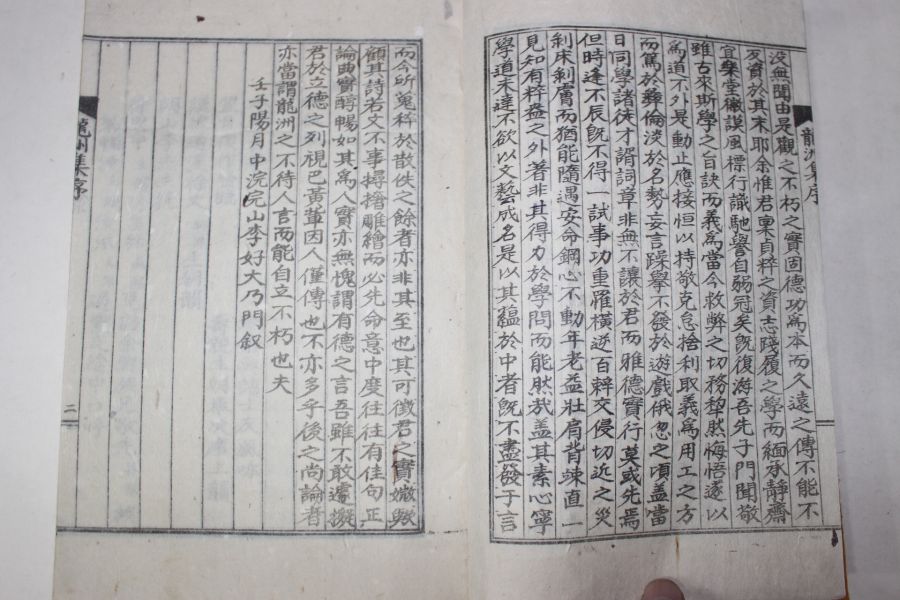 龍洲集序
沒無聞由是觀之不朽之實固德功爲本而久遠之傳不能不
有資於其末耶余惟君稟貞粹之資志踐履之學而緬承靜齋
宜樂堂徽謨風標行識馳譽自弱冠矣旣復游吾先子門聞敬
雖古來斯學之旨訣而義爲當今救弊之切務犁然悔悟遂以
爲道不外是動止應接恒以持敬克怠捨利取義爲用工之方
而篤於彛倫淡於名勢妄言躁擧不發於遊戱俄忽之頃盖當
日同學諸徒才諝詞章非無不讓於君而雅德實行莫或先焉
但時逢不辰旣不得一試事功重罹橫逆百粹交侵切近之災
剝床剝膚而猶能隨遇安命鋼心不動年老益壯肩背竦直一
見知有粹盎之外著非其得力於學問而能然哉盖其素心寧
學道未達不欲以文藝成名是以其蘊於中者旣不盡發于言
而今所蒐稡於散佚之餘者亦非其至也其可徵君之實媺歟
顧其詩若文不事撏撦雕繪而必先命意中度往往有佳句正
論典實醇暢如其爲人實亦無愧謂有德之言吾雖不敢遽擬
君於立德之列視巴黃董因人僅傳也不亦多乎後之尚論者
亦當謂龍洲之不待人言而能自立不朽也夫
壬子陽月中浣完山李好大乃門叙
龍洲集序
二